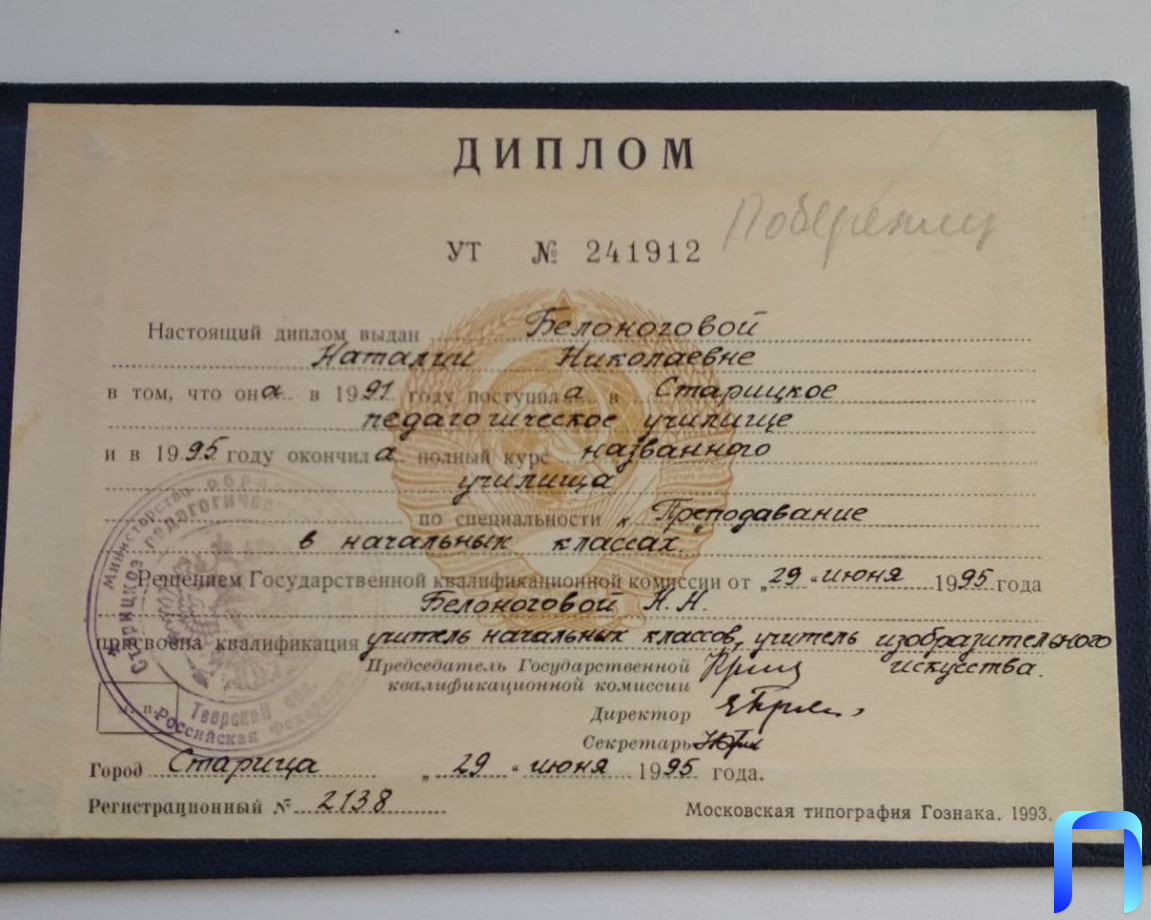 ДИПЛОМ
УТ № 241912
Настоящий диплом выдан Белоноговой
Наталии Николаевне
в том, что она в 1991 году поступила в Старицкое
педагогическое училище
и в 1995 году окончила полный курс названного
училища
по специальности Преподавание
в начальных классах.
Решением Государственной квалификационной комиссии от „29 “ июня 1995 года
Белоноговой Н.Н.
присвоена квалификация учитель начальных классов, учитель изобразительного
искусства.
Председатель Государственной
квалификационной комиссии
Директор
Секретарь
Министерство
Старицкое педагогическое
Тверской обл.
Российская Федерация
Город Старица „ 29 “ июня 1995 года.
Регистрационный № 2138
Московская типография Гознака. 1993.